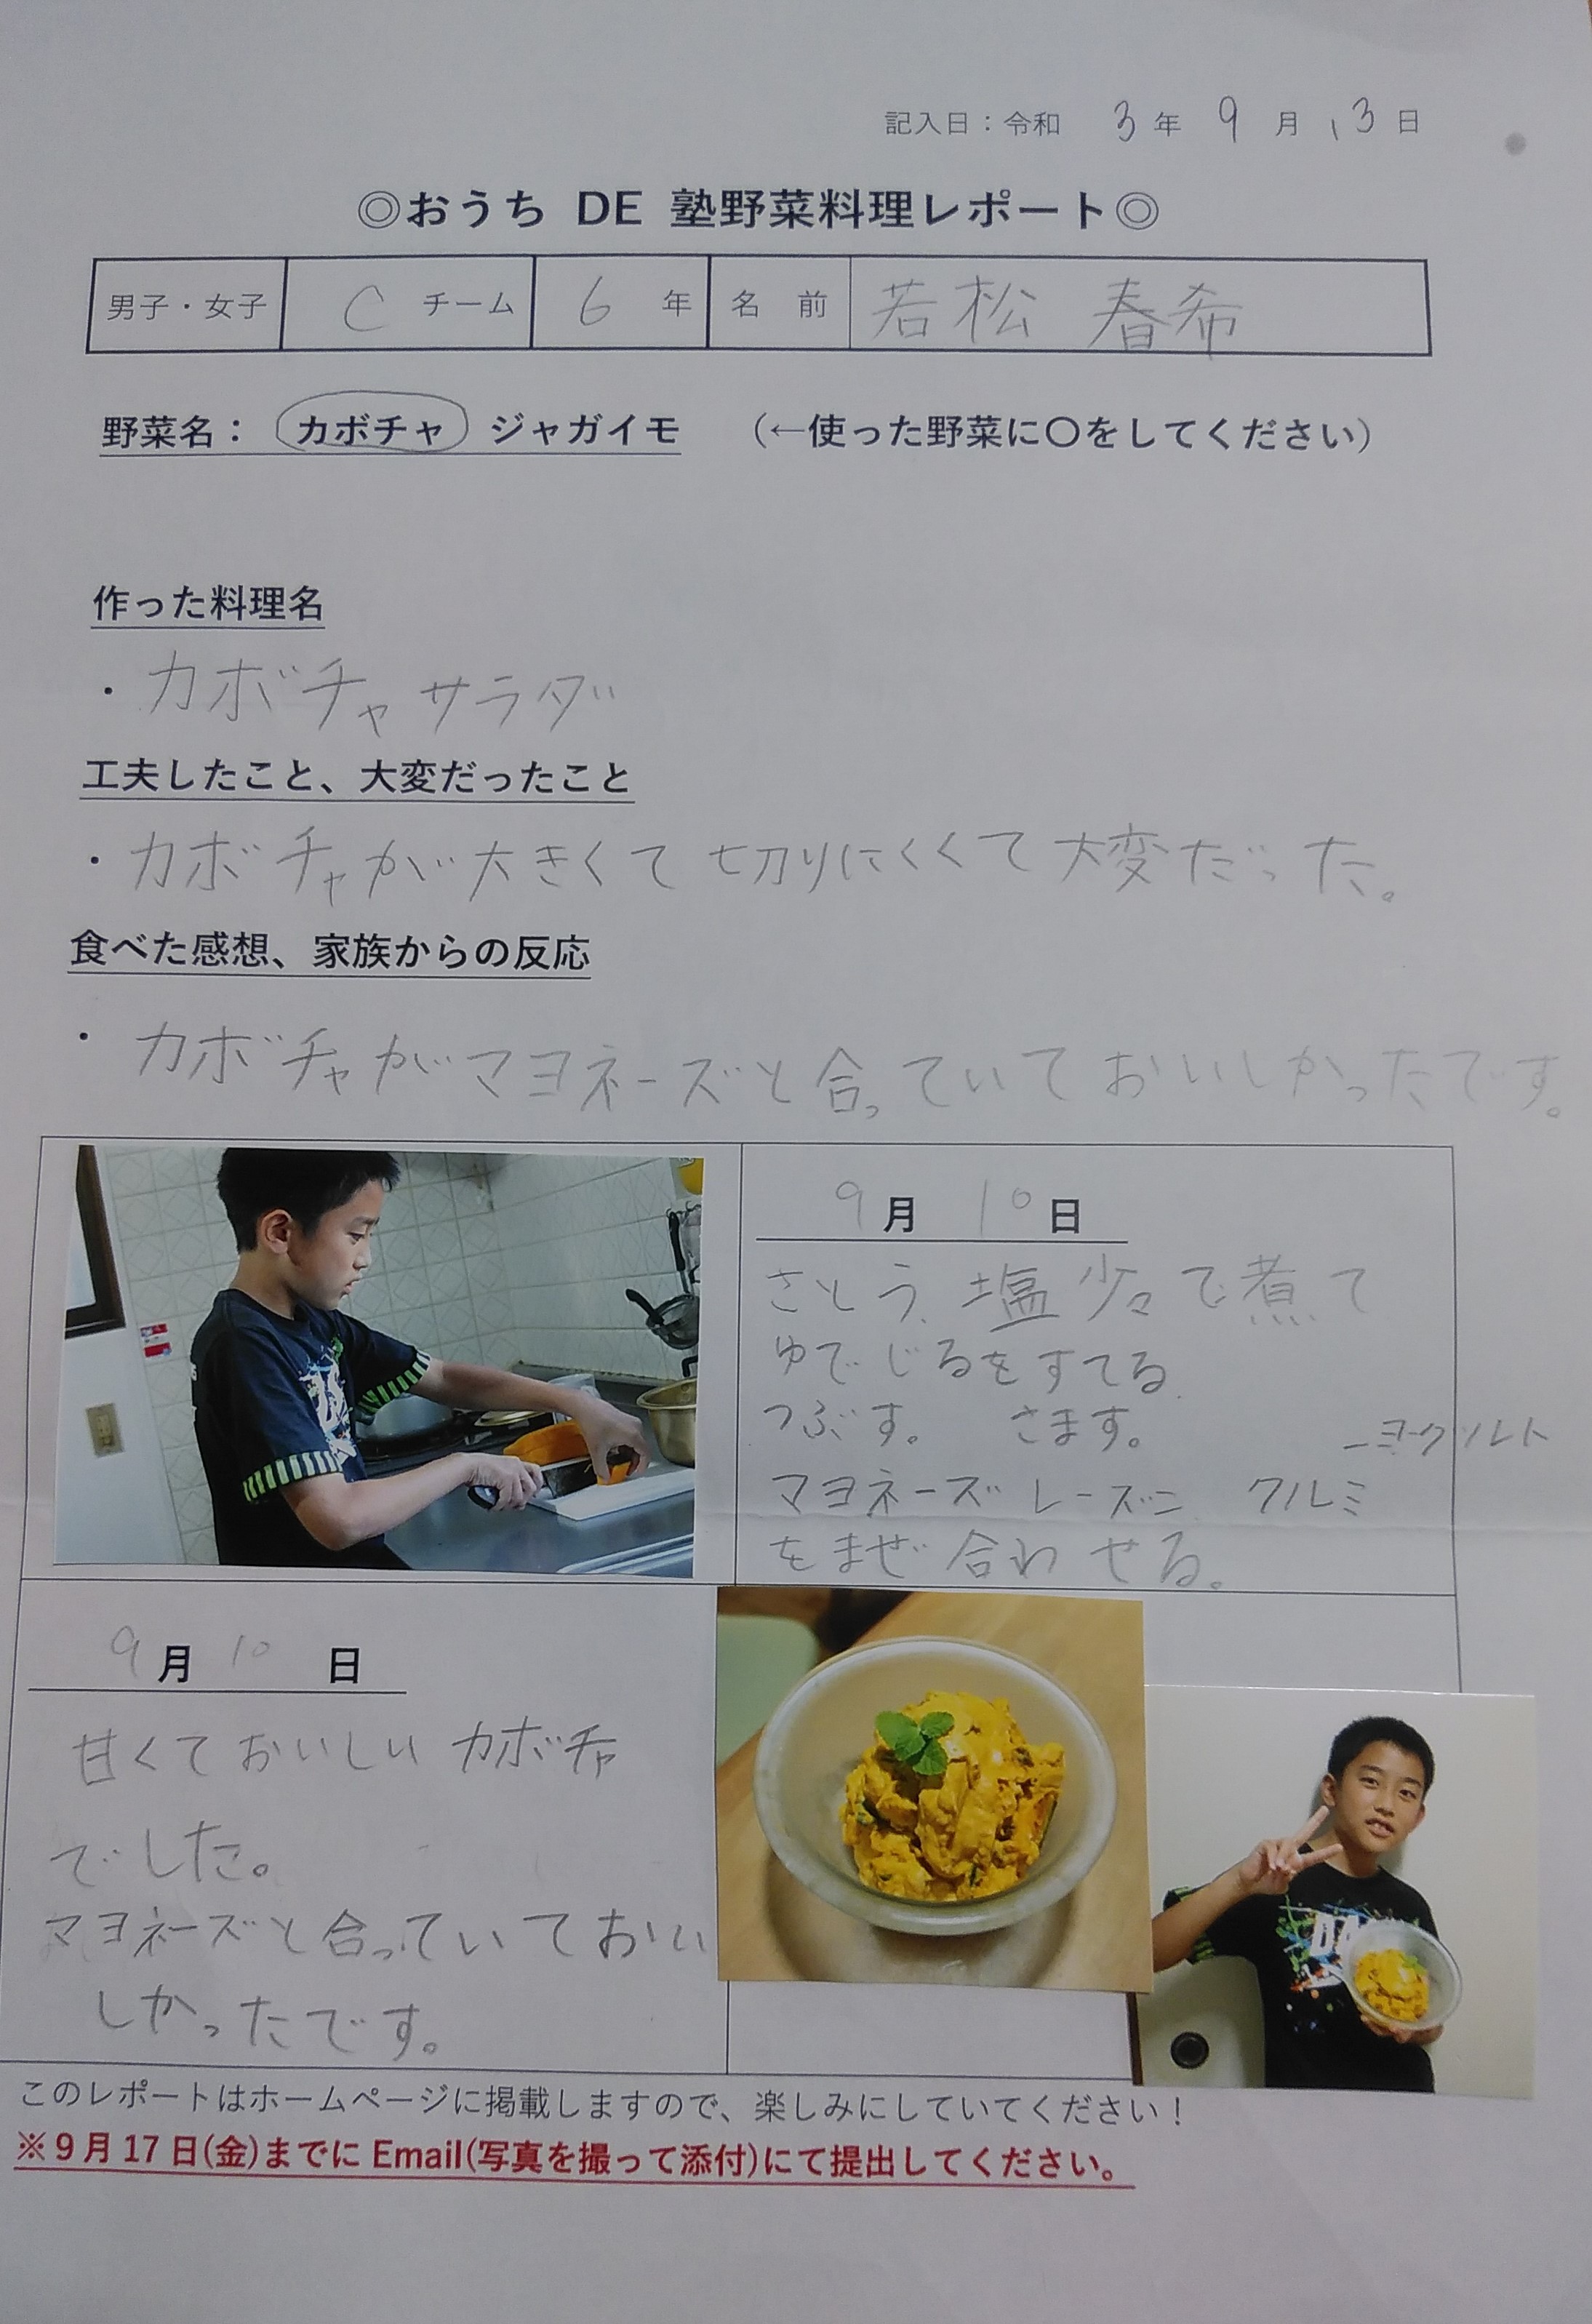 記入日：令和 3年 9月 13日
◎おうち DE 塾野菜料理レポート◎
男子・女子 C チーム 6 年 名 前 若松 春希
野菜名： カボチャ ジャガイモ （←使った野菜に〇をしてください）
作った料理名
・カボチャサラダ
工夫したこと、大変だったこと
・カボチャが大きくて切りにくくて大変だった。
食べた感想、家族からの反応
・カボチャがマヨネーズと合っていておいしかったです。
9月 10日
さとう、塩少々で煮て
ゆでじるをすてる
つぶす。 さます。
ヨークルト
マヨネーズ レーズン クルミ
をまぜ合わせる。
9月 10日
甘くておいしいカボチャ
でした。
マヨネーズと合っていておい
しかったです。
このレポートはホームページに掲載しますので、楽しみにしていてください！
※9月17日(金)までにEmail(写真を撮って添付)にて提出してください。